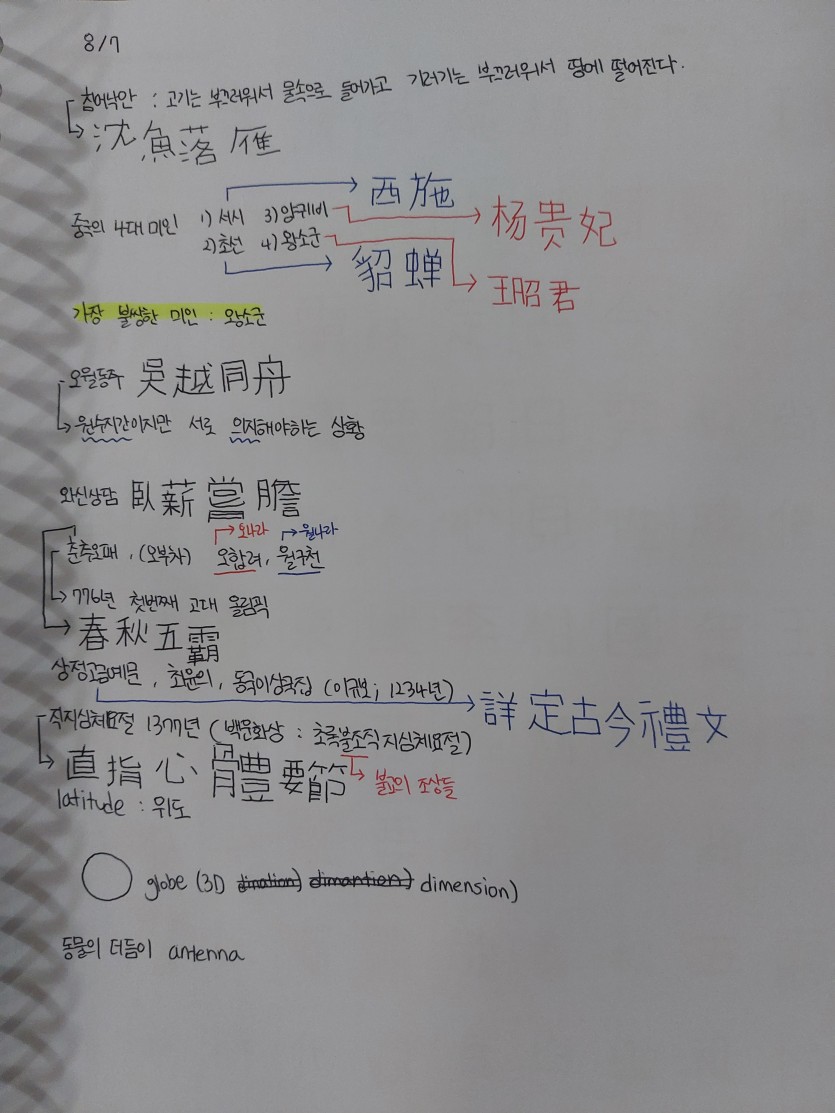 8/7
침어낙안 : 고기는 부끄러워서 물속으로 들어가고 기러기는 부끄러워서 땅에 떨어진다.
沈魚落雁
중국의 4대 미인 1) 서시 3) 양귀비
2) 초선 4) 왕소군
西施
杨贵妃
貂蝉
王昭君
가장 불쌍한 미인 : 왕소군
오월동주 吳越同舟
원수지간이지만 서로 의지해야하는 상황
와신상담 臥薪嘗膽
오나라 월나라
춘추오패, (오부차) 오합려, 월구천
776년 첫번째 고대 올림픽
春秋五霸
상정고금예문, 최윤의, 동국이상국집 (이규보; 1234년)
詳定古今禮文
직지심체요절 1377년 (백운화상 : 초록불조직지심체요절)
直指心體要節
불교의 조상들
latitude : 위도
globe (3D dimantion) dimension)
동물의 더듬이 antenna